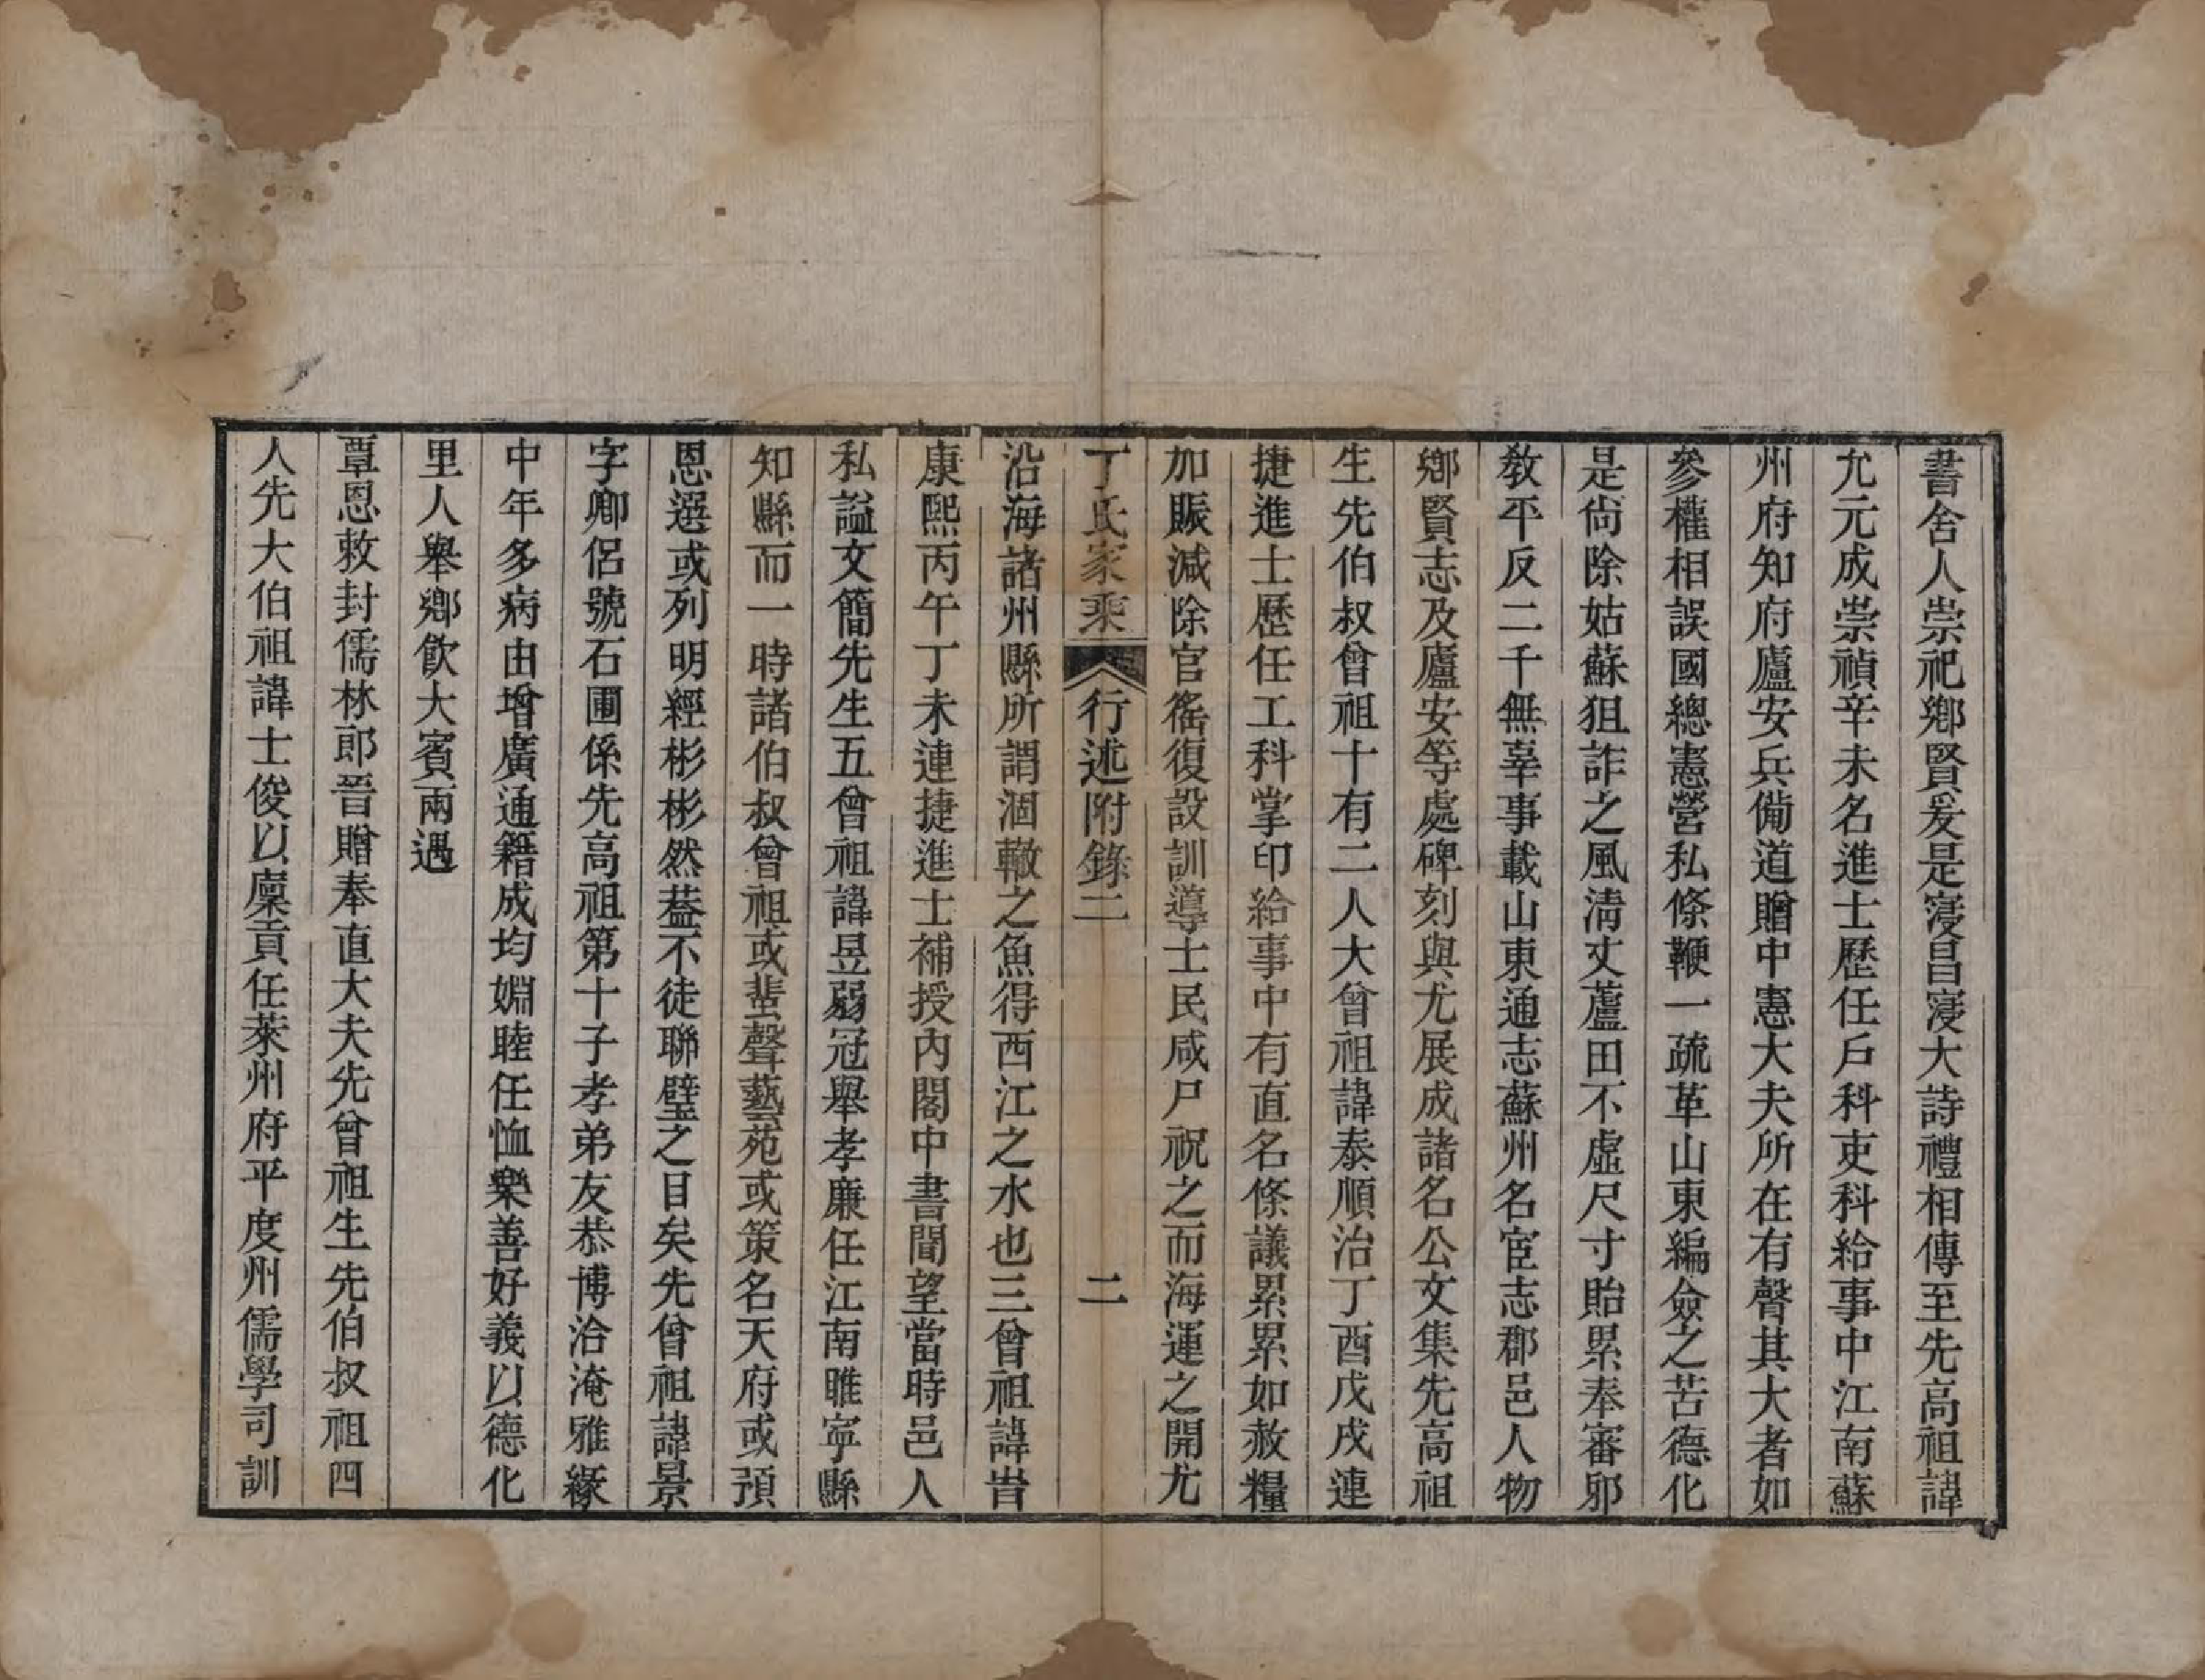 書舍人崇祀鄉賢爰是寖昌寖大詩禮相傳至先高祖諱
允元成崇禎辛未名進士歷任戶科吏科給事中江南蘇
州府知府廬安兵備道贈中憲大夫所在有聲其大者如
參權相誤國總憲營私條鞭一疏革山東編僉之苦德化
是尙除姑蘇狙詐之風淸丈蘆田不虛尺寸貽累奉審郉
敎平反二千無辜事載山東通志蘇州名宦志郡邑人物
鄉賢志及廬安等處碑刻與尤展成諸名公文集先高祖
生先伯叔曾祖十有二人大曾祖諱泰順治丁酉戊戌連
捷進士歷任工科掌印給事中有直名條議累累如赦糧
加賑減除官徭復設訓導士民咸尸祝之而海運之開尤
丁氏家乘 行述附錄二 二
沿海諸州縣所謂涸轍之魚得西江之水也三曾祖諱旹
康熙丙午丁未連捷進士補授內閣中書聞望當時邑人
私謚文簡先生五曾祖諱昱弱冠舉孝廉任江南睢寧縣
知縣而一時諸伯叔曾祖或蜚聲藝苑或策名天府或預
恩選或列明經彬彬然葢不徒聯璧之目矣先曾祖諱景
字卿侶號石圃係先高祖第十子孝弟友恭博洽淹雅緣
中年多病由增廣通籍成均婣睦任恤樂善好義以德化
里人舉鄉飮大賓兩遇
覃恩敕封儒林郎晉贈奉直大夫先曾祖生先伯叔祖四
人先大伯祖諱士俊以廩貢任萊州府平度州儒學司訓